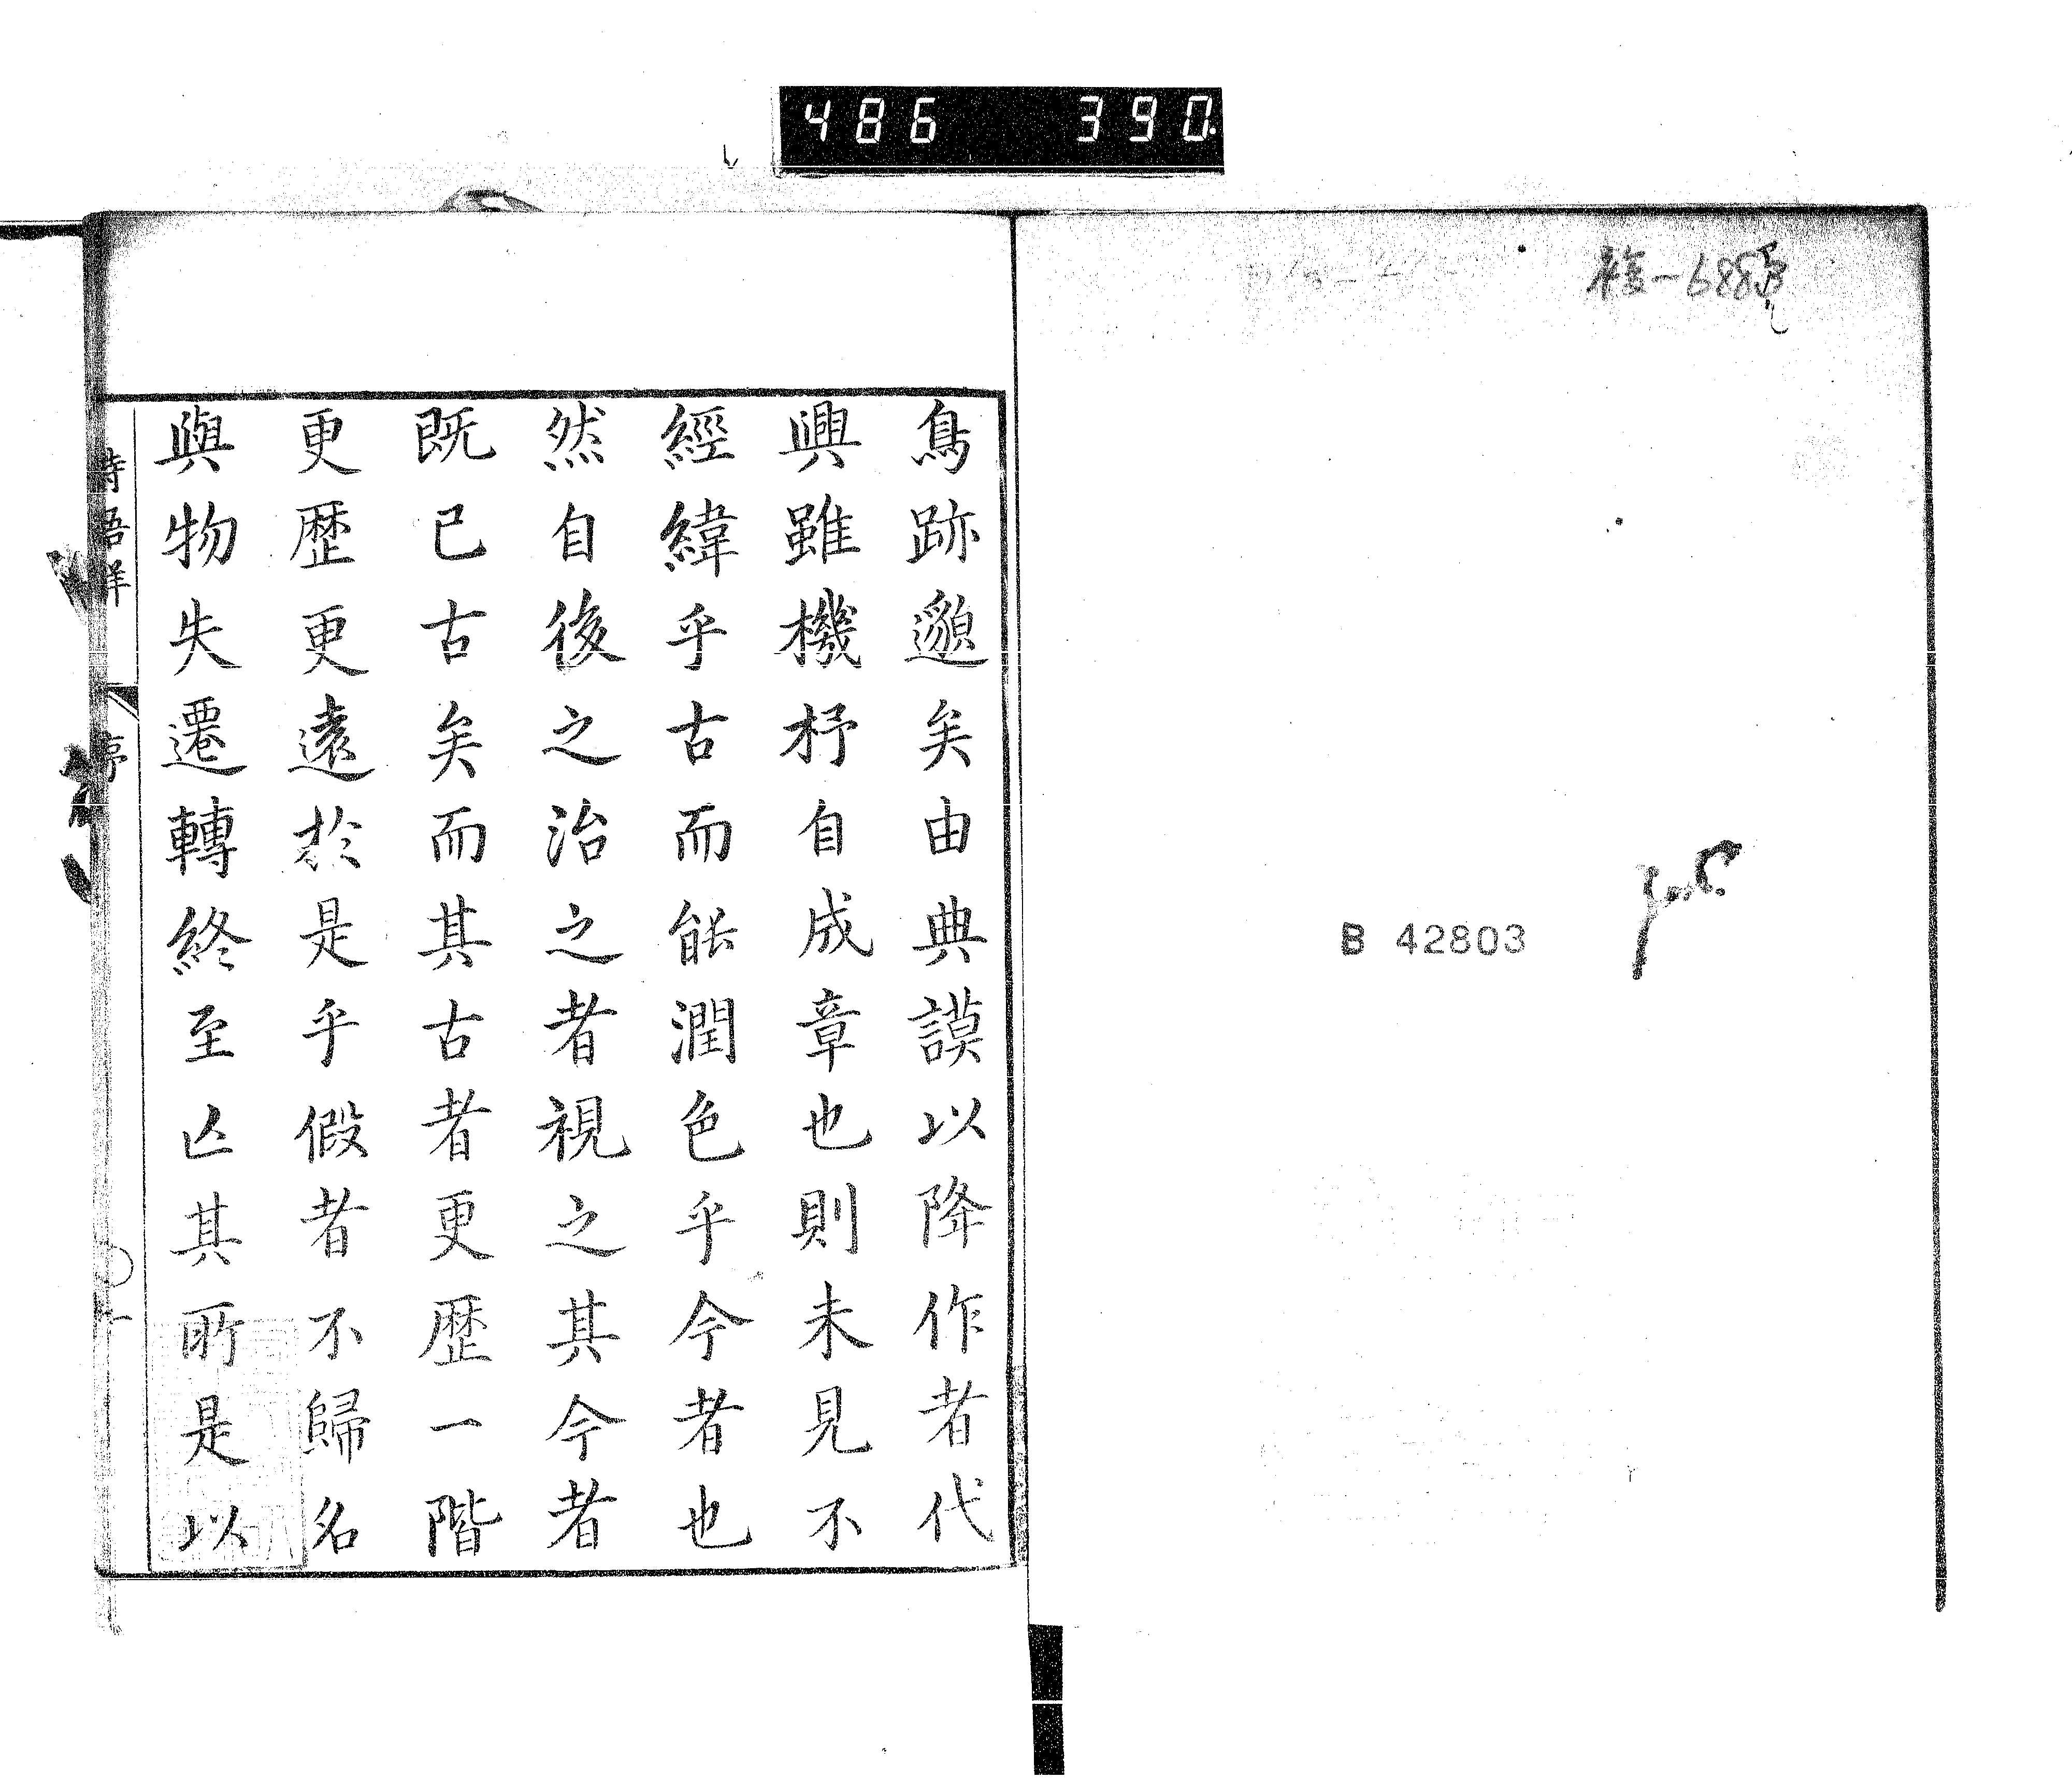 486 390.
B 42803
鳥跡邈矣由典謨以降作者代
興雖機杼自成章也則未見不
經緯乎古而能潤色乎今者也
然自後之治之者視之其今者
既已古矣而其古者更歷一階
更歷更遠於是乎假者不歸名
與物失遷轉終至亾其所是以